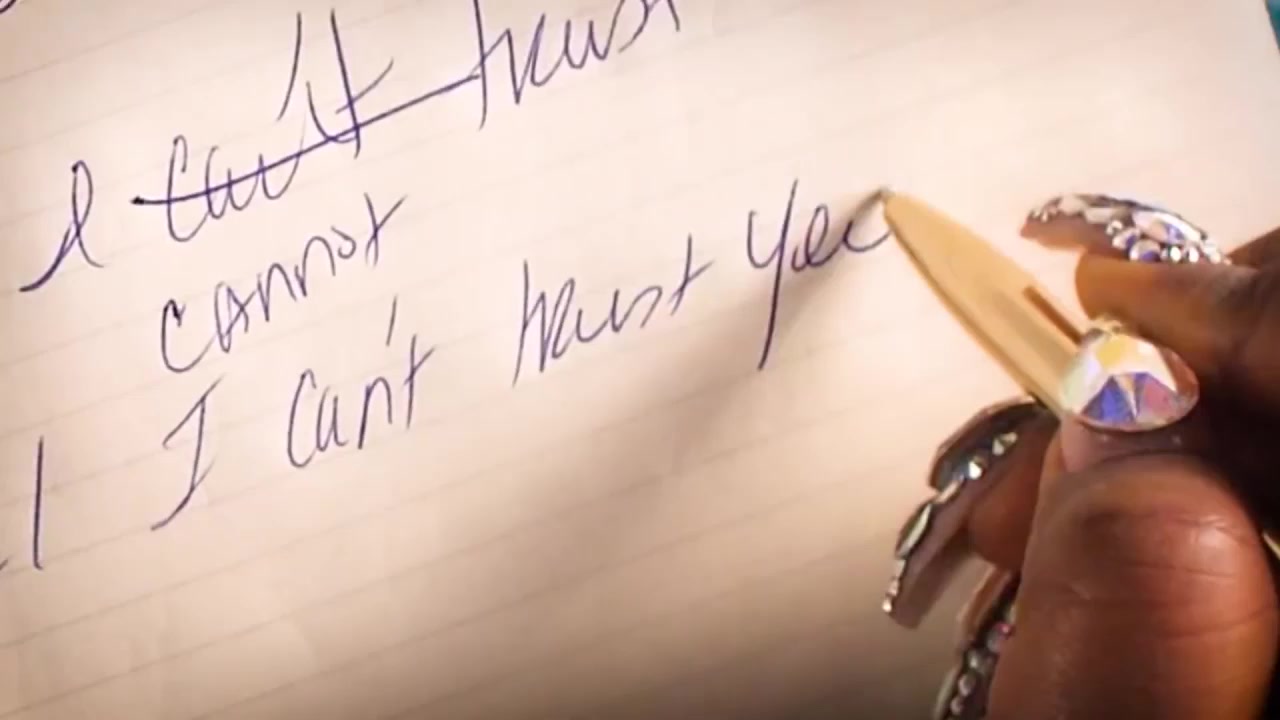 I can't trust
cannot
I can't trust you